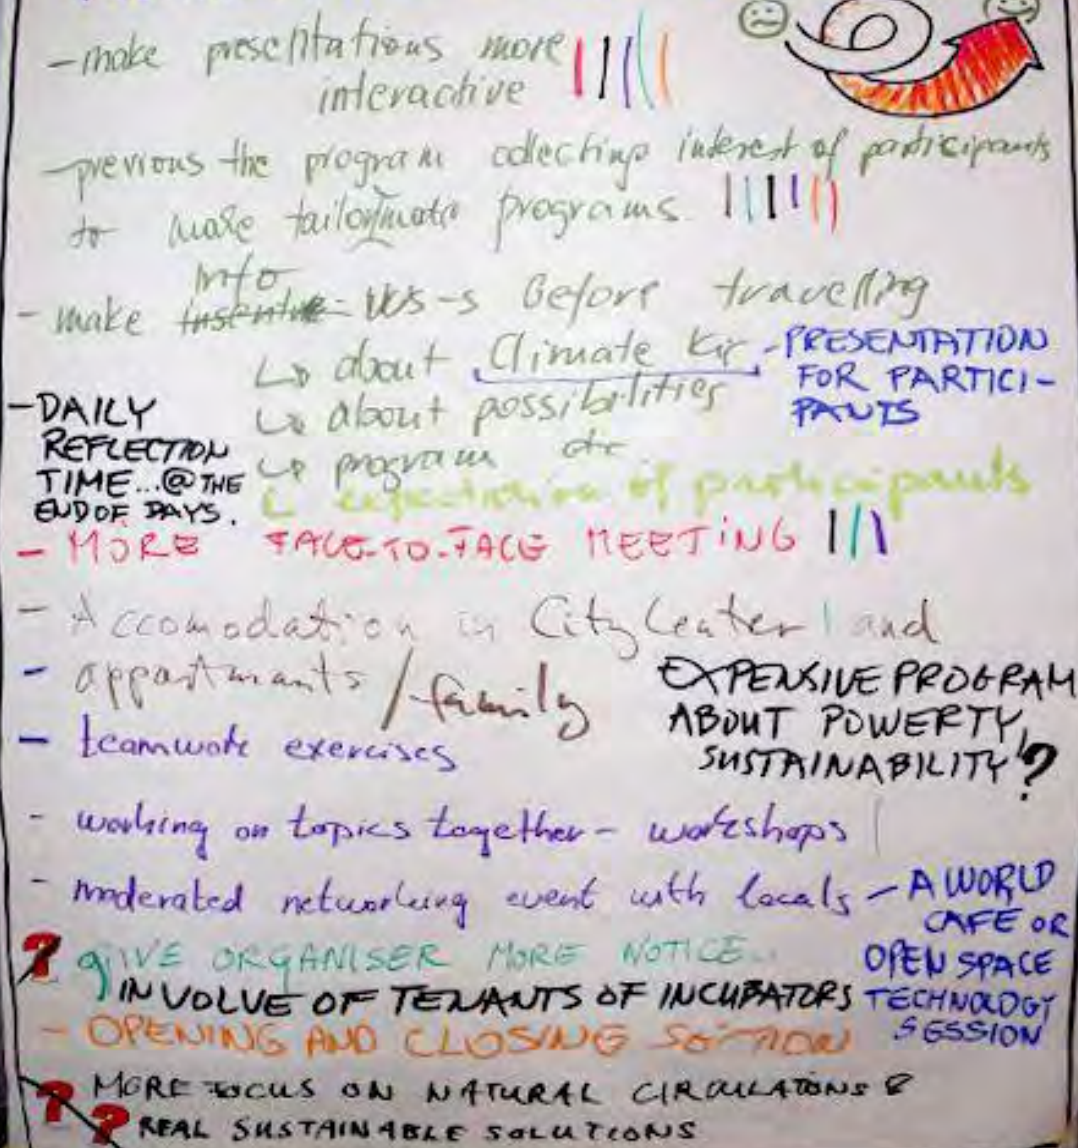 - make presentations more
interactive
- previous the program collecting interest of participants
to make tailormate programs
info
- make before travelling
↳ about Climate Kic - PRESENTATION
FOR PARTICI-
PANTS
↳ about possibilities
↳ program etc
↳ expectation of participants
- DAILY
REFLECTION
TIME...@ THE
END OF DAYS.
- MORE FACE-TO-FACE MEETING
- Accomodation in City Center and
- appartmants / family
EXPENSIVE PROGRAM
ABOUT POWERTY,
SUSTAINABILITY?
- teamwork exercises
- working on topics together - workshops
- moderated networking event with locals - A WORLD
CAFE OR
OPEN SPACE
TECHNOLOGY
SESSION
? gIVE ORGANISER MORE NOTICE...
INVOLVE OF TENANTS OF INCUBATORS
- OPENING AND CLOSING
? MORE FOCUS ON NATURAL
? REAL SUSTAINABLE SOLUTIONS